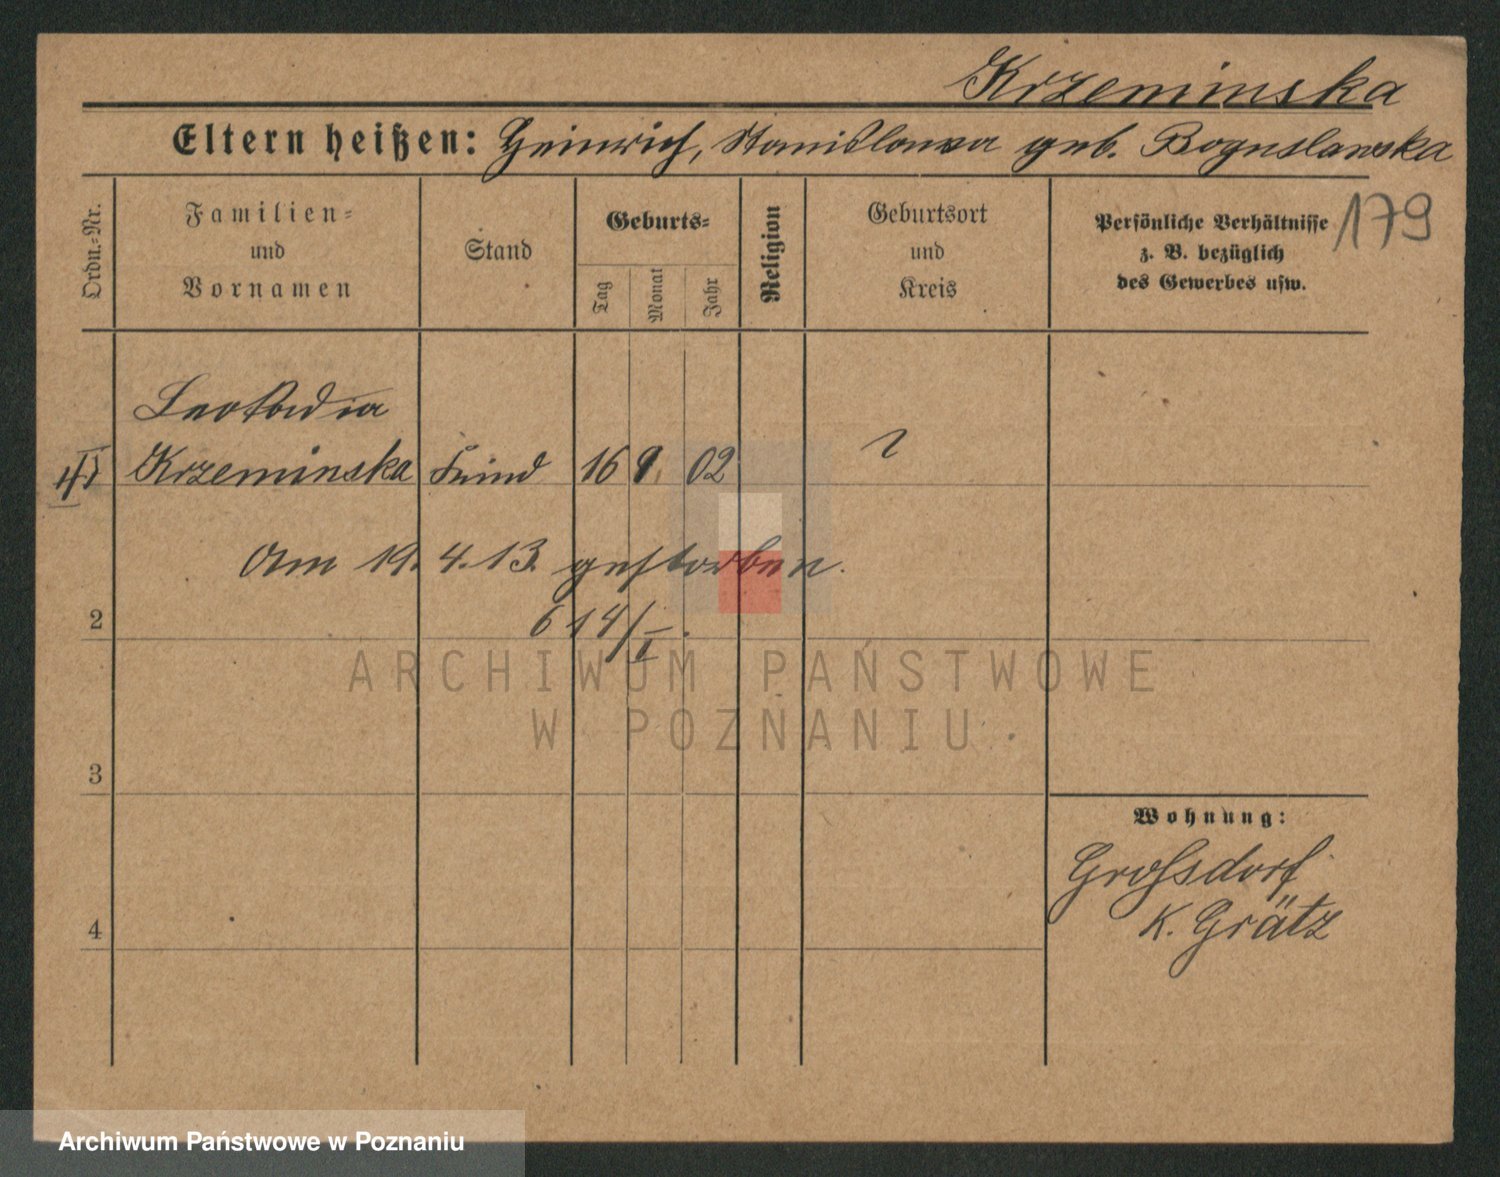 Krzeminska
Eltern heißen: Heinrich, Stanislawa geb. Boguslawska
179
Ordn.-Nr.
Familien-
und
Vornamen
Stand
Geburts-
Tag
Monat
Jahr
Religion
Geburtsort
und
Kreis
Persönliche Verhältnisse
z. B. bezüglich
des Gewerbes usw.
Leokadia
Krzeminska Kind 16 9. 02 ?
Am 19. 4. 13. gestorben.
2
614/I.
3
4
Wohnung:
Grossdorf
K. Grätz
ARCHIWUM PAŃSTWOWE
W POZNANIU
Archiwum Państwowe w Poznaniu